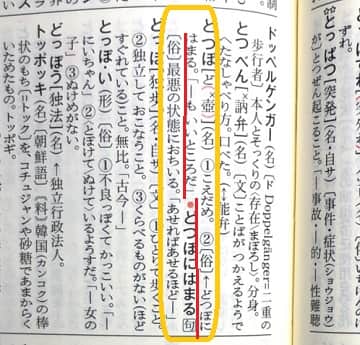 制
ずれ。
とっぱつ［突発］（名・自サ）〔事件・症状（ショウジョウ）
が〕とつぜん起こること。「―事故・―的・―性難聴
ドッペルゲンガー（名）〔ド Doppelgänger＝二重の
歩行者〕本人とそっくりの〈存在／まぼろし〉。分身。
とつべん［×訥弁］（名）〔文〕ことばがつかえるようで
へたなしゃべり方。口べた。（↑能弁）
とつぼ［ど（×壺）］（名）①こえだめ。②〔俗〕↑とつぼに
はまる。「―もいいところだ」 ●とつぼにはまる 句
〔俗〕最悪の状態におちいる。「あせればあせるほど―」
とっぽ［独歩］（名・自サ）〔文〕①ひとりで歩くこと。
②独立しておこなうこと。③くらべるものがない〈ほど
すぐれている〉こと。無比。「古今―」
とっぽ・い（形）〔俗〕①不良っぽくてかっこいい。「―
にいちゃん」②〈とぼけて／ぬけて〉いるようすだ。「―女の
子」③ぬけめがない。
どっぽう［独法］（名）↑独立行政法人。
トッポッキ（名）〔朝鮮語〕〔料〕韓国（カンコク）の棒
状のもち（＝トック）を、コチュジャンや砂糖であまから
くいためたもの。トッポギ。